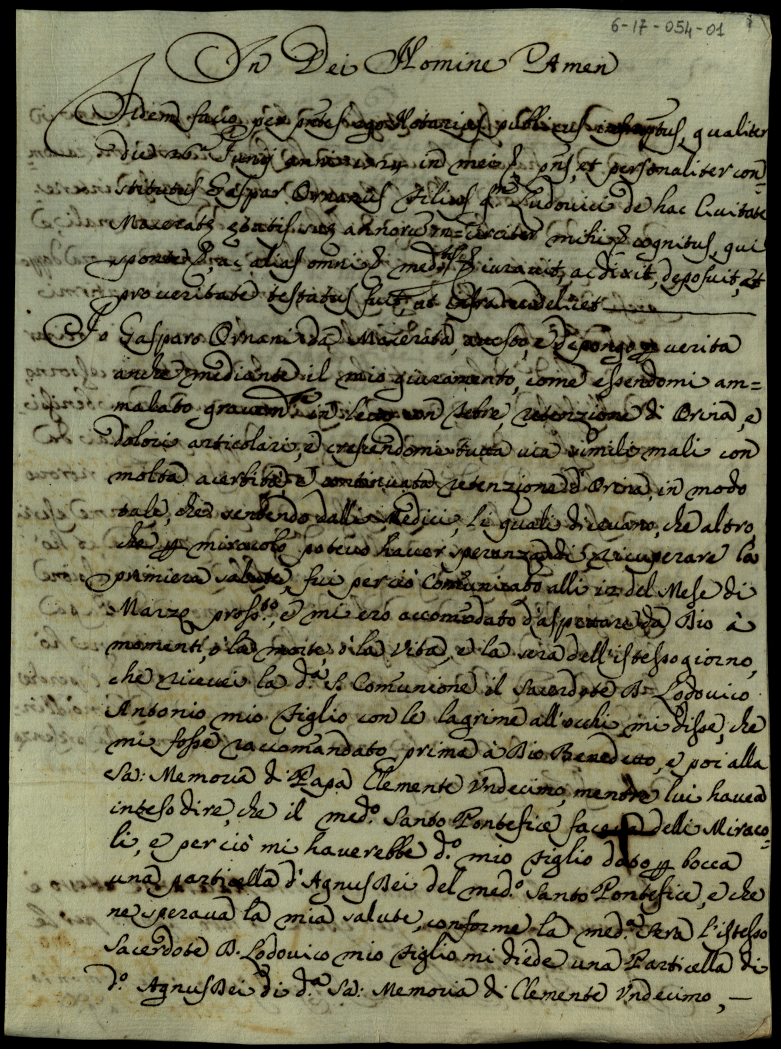 6-17-054-01
In Dei Nomine Amen
Fidem facio per pntes ego Notarius publicus infraptus, qualiter
die 26 Junij in mei pns, et personaliter con=
stitutus Gaspar Ornanus Filius Ludovici de hac Civitate
Maceratę ętatis suę annorum circiter mihi cognitus, qui
sponte ac alias omni med. iuravit, ac dixit, deposuit, et
pro veritate testatus fuit, ut
Io Gasparo Ornani da Macerata, attesto, e depongo p verità
anche mediante il mio giuramento, come essendomi am=
malato gravemte in letto con febre, retenzione di Orina, e
dolori articolari, e crescendomi tutta via simili mali con
molta acerbità, e continuata retenzione d'Orina, in modo
tale, che sentendo dalli Medici, li quali dicevano, che altro
che p miracolo potevo haver speranza di ricuperare la
primiera salute, fui perciò Comunicato alli 12 del Mese di
Marzo pross.o, e mi ero accomodato d'aspettare da Dio à
momenti, ò la morte, ò la Vita, e la sera dell'istesso giorno,
che ricevei la d.a S. Comunione il Sacerdote D. Lodovico
Antonio mio figlio con le lagrime all'occhi mi disse, che
mi fosse raccomandato prima à Dio Benedetto, e poi alla
Sa: Memoria di Papa Clemente Undecimo, mentre lui havea
inteso dire, che il med.o Santo Pontefice faceva delli Miraco=
li, e perciò mi haverebbe d.o mio figlio dato p bocca
una particella d'Agnus Dei del med.o Santo Pontefice, e che
ne sperava la mia salute, conforme la med.a sera l'istesso
Sacerdote D. Lodovico mio figlio mi diede una Particella di
d.o Agnus Dei di d.a Sa: Memoria di Clemente Undecimo, —